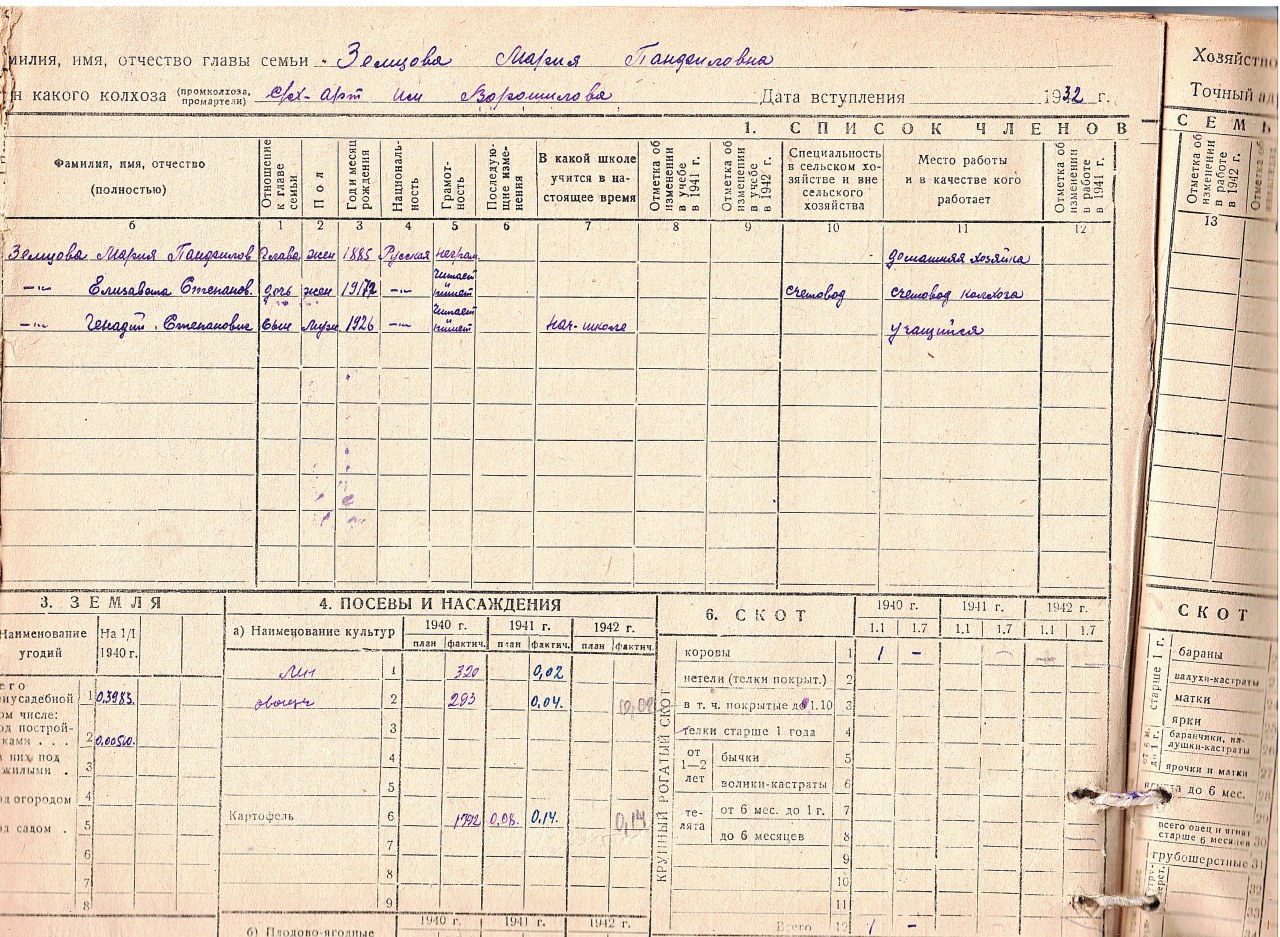 милия, имя, отчество главы семьи Земцова Мария Панфиловна
н какого колхоза (промколхоза, промартели) с/х-арт им Ворошилова Дата вступления 1932 г.
1. СПИСОК ЧЛЕНОВ
Фамилия, имя, отчество (полностью)
Отношение к главе семьи
Пол
Год и месяц рождения
Националь-ность
Грамот-ность
Последую-щие изме-нения
В какой школе учится в на-стоящее время
Отметка об изменении в учебе в 1941 г.
Отметка об изменении в учебе в 1942 г.
Специальность в сельском хо-зяйстве и вне сельского хозяйства
Место работы и в качестве кого работает
Отметка об изменении в работе в 1941 г.
б 1 2 3 4 5 6 7 8 9 10 11 12
Земцова Мария Панфилов глава жен 1885 Русская неграм. домашняя хозяйка
–"– Елизавета Степанов. дочь жен –"– читает и пишет счетовод счетовод колхоза
–"– Генадий Степанович сын муж 1926 –"– читает и пишет нач-школе учащийся
3. ЗЕМЛЯ
Наименование угодий
На 1/I 1940 г.
его
иусадебной 1 0,3983
ом числе:
од построй-
ками . . . 2
них под
жилыми . 3
од огородом 4
од садом . 5
6
7
8
4. ПОСЕВЫ И НАСАЖДЕНИЯ
а) Наименование культур
1940 г. 1941 г. 1942 г.
план фактич. план фактич. план фактич.
1 320 0,02
овощи 2 293 0,04
3
4
5
Картофель 6 1792 0,08. 0,14. 0,14
7
8
9
1940 г. 1941 г. 1942 г.
б) Плодово-ягодные
6. СКОТ
1940 г. 1941 г. 1942 г.
1.1 1.7 1.1 1.7 1.1 1.7
КРУПНЫЙ РОГАТЫЙ СКОТ
коровы 1 1 –
нетели (телки покрыт.) 2
в т. ч. покрытые до 1.10 3
телки старше 1 года 4
от 1—2 лет
бычки 5
волики-кастраты 6
те-лята
от 6 мес. до 1 г. 7
до 6 месяцев 8
9
10
11
Всего 12 1 –
Хозяйство
Точный ад
СЕМЬ
Отметка об изменении в работе в 1942 г.
13
СКОТ
старше 1 г.
бараны
валухи-кастраты
матки
ярки
от 6 м. до 1 г.
баранчики, ва-лушки-кастраты
ярочки и матки
ягнята до 6 мес.
всего овец и ягнят старше 6 месяцев
грубошерстные